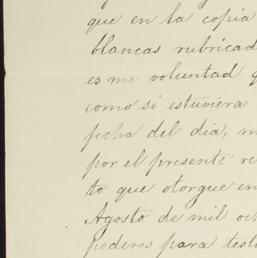 que en la copia
blancas rubricad
es mi voluntad q
como si estuviera
fecha del dia, m
por el presente re
to que otorgue en
Agosto de mil och
poderes para testa